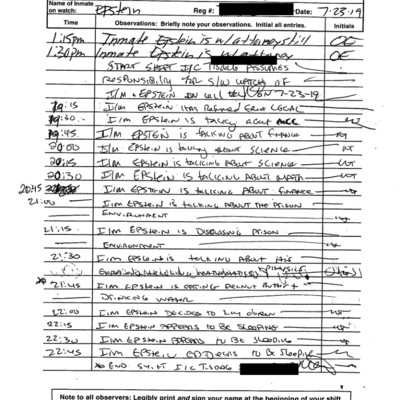 Name of Inmate on watch: Epstein Reg #: Date: 7-23-19
Time Observations: Briefly note your observations. Initial all entries. Initials
1:15pm Inmate Epstein is w/ attorney still
1:30pm Inmate Epstein is w/
START SHIFT I/C
RESPONSIBILITY FOR S/W WATCH OF
I/M EPSTEIN IN CELL ON 7-23-19
19:15 I/m EPSTEIN FROM LEGAL
19:30 I/m EPSTEIN is talking about
19:45 I/m EPSTEIN is TALKING ABOUT FINANCE
20:00 I/m EPSTEIN is talking about SCIENCE
20:15 I/m EPSTEIN is TALKING ABOUT SCIENCE
20:30 I/m EPSTEIN is TALKING ABOUT MATH
20:45 I/m EPSTEIN is TALKING ABOUT FINANCE
21:00 I/m EPSTEIN is TALKING ABOUT THE PRISON
ENVIRONMENT
21:15 I/m EPSTEIN is DISCUSSING PRISON
ENVIRONMENT
21:30 I/m EPSTEIN is TALKING ABOUT HIS
PHYSICS
21:45 I/m EPSTEIN is EATING PEANUT BUTTER +
DRINKING WATER
22:00 I/m EPSTEIN DECIDED TO LAY DOWN
22:15 I/m EPSTEIN APPEARS TO BE SLEEPING
22:30 I/m EPSTEIN APPEARS TO BE SLEEPING
22:45 I/m EPSTEIN APPEARS TO BE SLEEPING
END SHIFT I/C
Note to all observers: Legibly print and sign your name at the beginning of your shift